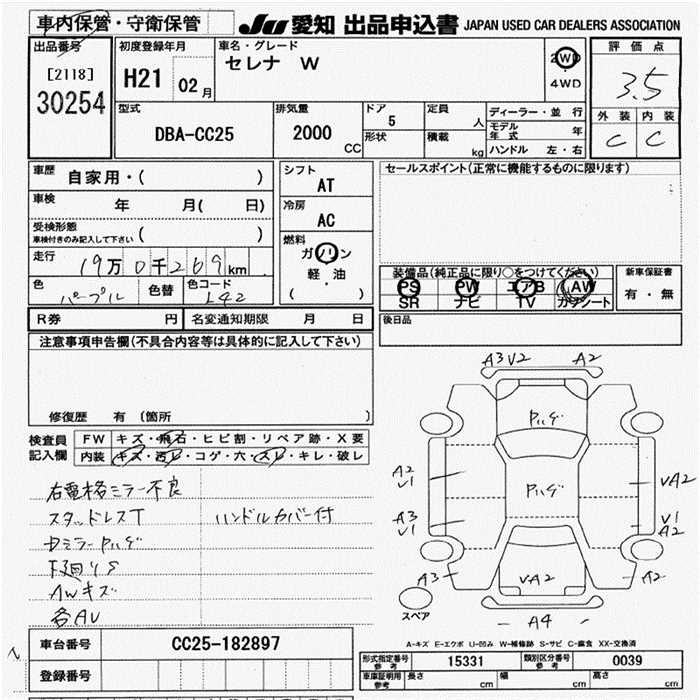 車内保管・守衛保管
JU 愛知 出品申込書 JAPAN USED CAR DEALERS ASSOCIATION
出品番号
[2118]
30254
初度登録年月
H21 02 月
車名・グレード
セレナ W
2WD
・
4WD
評価点
3.5
外装 内装
C C
型式
DBA-CC25
排気量
2000 CC
ドア
5
形状
定員
人
積載
kg
ディーラー・並行
モデル年式 年
ハンドル 左・右
車歴 自家用・( )
車検 年 月( 日)
受検形態
車検付きのみ記入して下さい ( )
走行 19万0千269km
色 パープル 色替 色コード L42
シフト
AT
冷房
AC
燃料
ガソリン
・
軽・油
( )
セールスポイント(正常に機能するものに限ります)
装備品(純正品に限り○をつけてください)
PS PW エアB AW
SR ナビ TV ガチシート
新車保証書
有・無
R券 円 名変通知期限 月 日
後日品
注意事項申告欄(不具合内容等は具体的に記入して下さい)
修復歴 有 (箇所 )
検査員
記入欄
FW キズ・飛石・ヒビ割・リペア跡・X要
内装 キズ・汚レ・コゲ・穴・スレ・キレ・破レ
右電格ミラー不良
スタッドレスT ハンドルカバー付
DミラーPハゲ
下廻りS
AWキズ
各AU
A3 V2 A2
Pハゲ
A2
V1
Pハゲ
VA2
A3
V1
V1
A2
A3
VA2
A2
スペア
A4
A-キズ E-エクボ U-凹み W-補修跡 S-サビ C-腐食 XX-交換済
車台番号 CC25-182897
登録番号
形式指定番号 参考 15331 類別区分番号 参考 0039
車庫証明用 参考 長さ cm 幅 cm 高さ cm